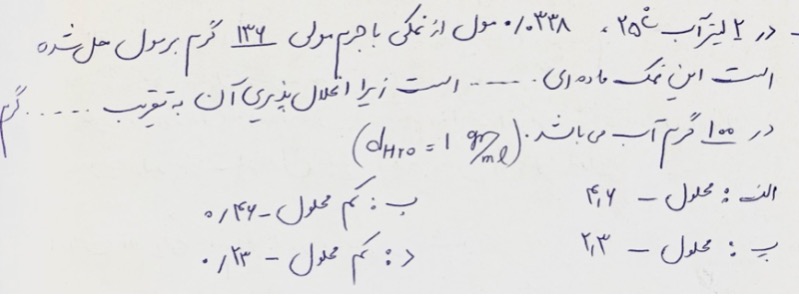 - در ۲ لیتر آب ۲۵°C، ۰/۰۳۳۸ مول از نمکی با جرم مولی ۱۳۶ گرم بر مول حل شده
است این نمک ماده‌ای ...... است زیرا انحلال پذیری آن به تقریب ..... گرم
در ۱۰۰ گرم آب می باشد. (dH₂O = 1 gr/ml)
الف: محلول - ۴,۶ ب: کم محلول - ۰/۴۶
پ: محلول - ۲,۳ د: کم محلول - ۰/۲۳